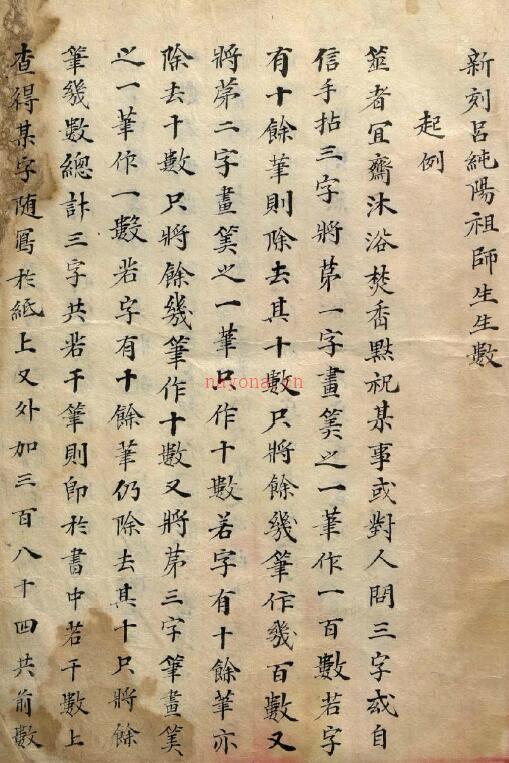 新刻吕純陽祖師生生數
起例
筮者宜齋沐浴焚香黙祝某事或對人問三字或自
信手拈三字將苐一字畫筭之一筆作一百數若字
有十餘筆則除去其十數只將餘幾筆作幾百數又
將苐二字畫筭之一筆只作十數若字有十餘筆亦
除去十數只將餘幾筆作十數又將苐三字筆畫筭
之一筆作一數若字有十餘筆仍除去其十只將餘
筆幾數總計三字共若干筆則即於書中若干數上
查得某字随寫於紙上又外加三百八十四共前數
nayona.cn